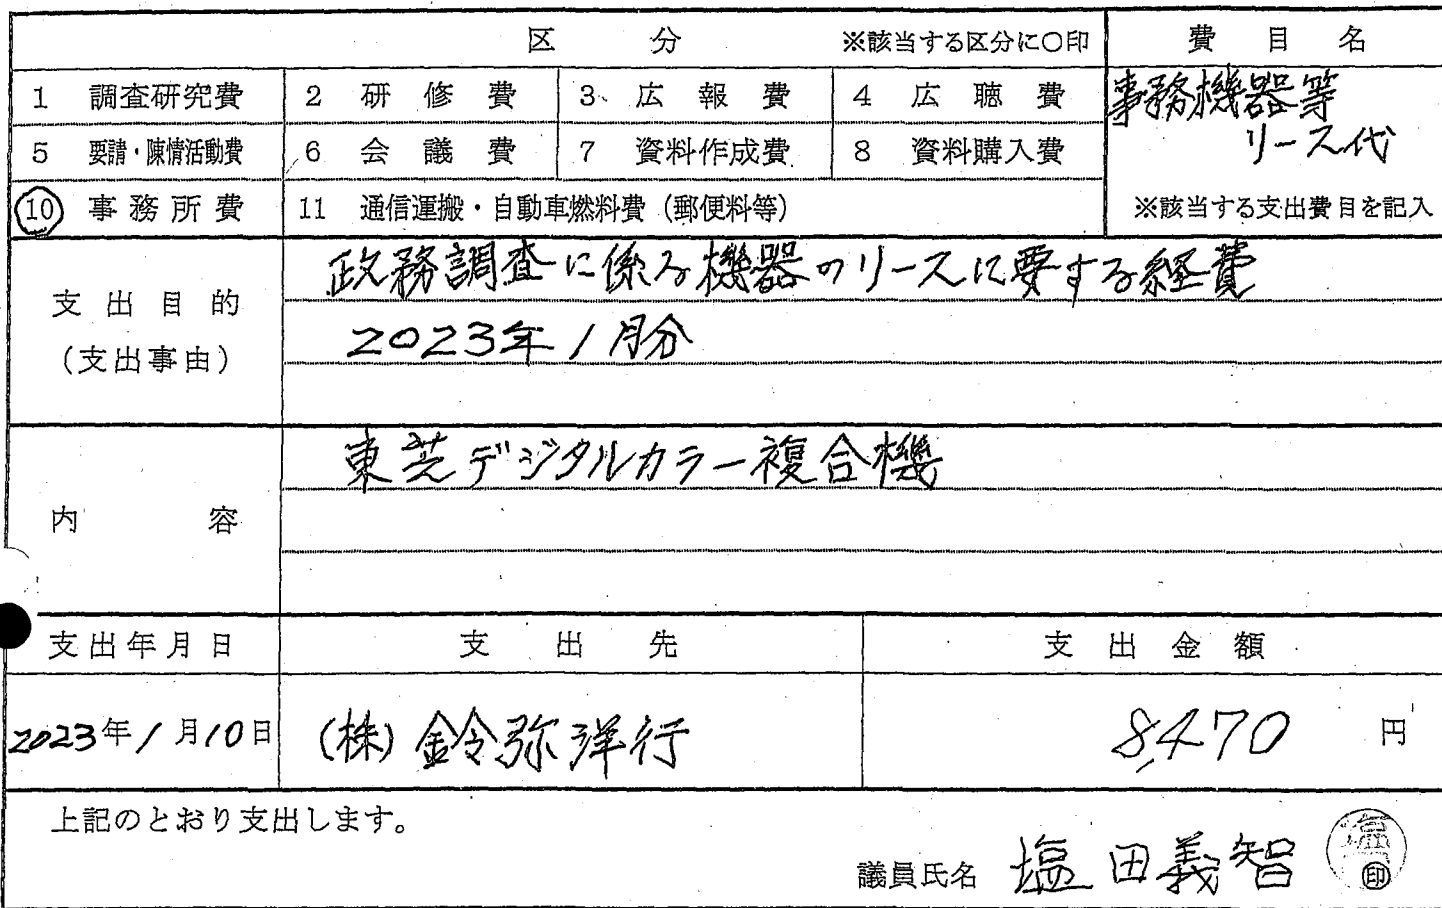 区 分 ※該当する区分に○印 費 目 名
1 調査研究費 2 研 修 費 3 広 報 費 4 広 聴 費
事務機器等
リース代
5 要請・陳情活動費 6 会 議 費 7 資料作成費 8 資料購入費
10 事務所費 11 通信運搬・自動車燃料費(郵便料等)
※該当する支出費目を記入
支出目的
(支出事由)
政務調査に係る機器のリースに要する経費
2023年1月分
内 容
東芝デジタルカラー複合機
支出年月日 支 出 先 支 出 金 額
2023年1月10日 (株)鈴弥洋行 8,470 円
上記のとおり支出します。
議員氏名 塩田義智 ㊞